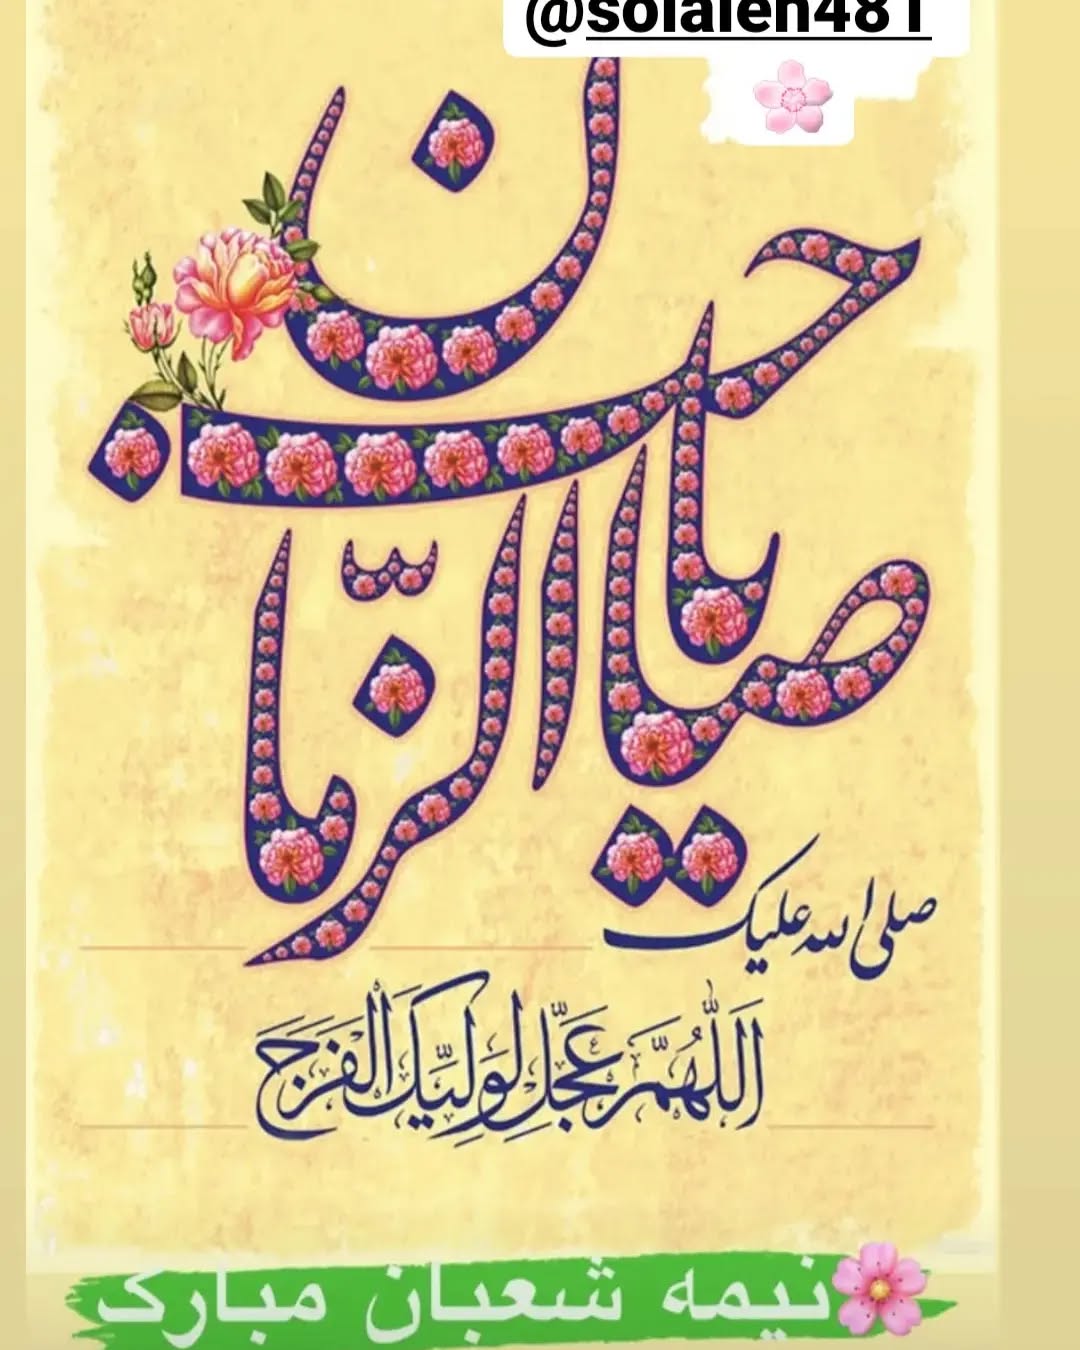 @solaleh481
یا صاحب الزمان
صلی الله علیک
اَللّٰهُمَّ عَجِّلْ لِوَلِیِّکَ الْفَرَجَ
نیمه شعبان مبارک